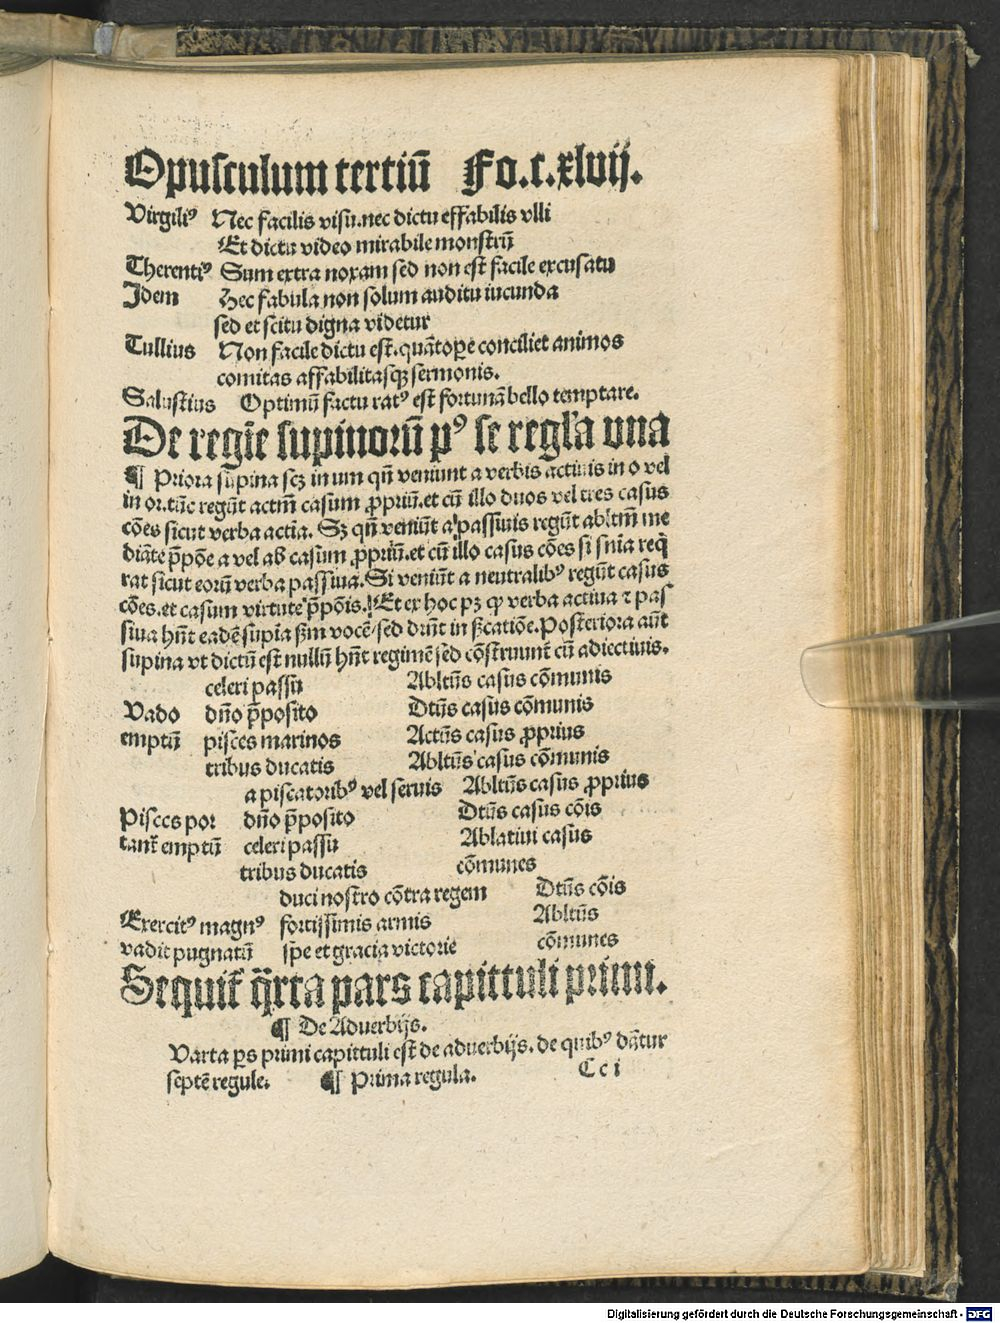 Opusculum tertiū Fo.c.xlvij.
Virgiliꝰ Nec facilis visu.nec dictu effabilis vlli
Et dictu video mirabile monstrū
Therentiꝰ Sum extra noxam sed non est facile excusatu
Idem Hec fabula non solum auditu iucunda
sed et scitu digna videtur
Tullius Non facile dictu est.quātoꝑe conciliet animos
comitas affabilitasqꝫ sermonis.
Salustius Optimū factu ratꝰ est fortunā bello temptare.
De regīe supinorū pꝰ se regl'a vna
¶ Priora supina scꝫ in um qn̄ veniunt a verbis actiuis in o vel
in or.tūc regūt actm̄ casum ꝓpriū.et cū illo duos vel tres casus
cōes sicut verba actīa. Sꝫ qn̄ veniūt a passiuis regūt abltm̄ me
diāte p̄pōe a vel ab casum ꝓpriū.et cū illo casus cōes si snīa req̄
rat sicut eorū verba passiua. Si veniūt a neutralibꝰ regūt casus
cōes.et casum virtute p̄pōis. Et ex hoc pꝫ ꝙ verba actiua ⁊ pas
siua hn̄t eadē supīa ẜm vocē/sed dr̄nt in ẜcatiōe. Posteriora aūt
supina vt dictū est nullū hn̄t regimē sed cōstruunt̄ cū adiectiuis.
celeri passu Abltūs casus cōmunis
Vado dn̄o p̄posito Dtūs casus cōmunis
emptū pisces marinos Actūs casus ꝓprius
tribus ducatis Abltūs casus cōmunis
a piscatoribꝰ vel seruis Abltūs casus ꝓprius
Pisces por dn̄o p̄posito Dtūs casus cōis
tant̄ emptū celeri passu Ablatiui casus
tribus ducatis cōmunes
duci nostro cōtra regem Dtūs cōis
Exercitꝰ magnꝰ fortissimis armis Abltūs
vadit pugnatū spe et gracia victorie cōmunes
Sequit̄ q̄rta pars capittuli primi.
¶ De Aduerbijs.
Varta ꝑs primi capittuli est de aduerbijs. de quibꝰ dāt̄ur
septē regule. ¶ Prima regula. C c i
Digitalisierung gefördert durch die Deutsche Forschungsgemeinschaft - DFG